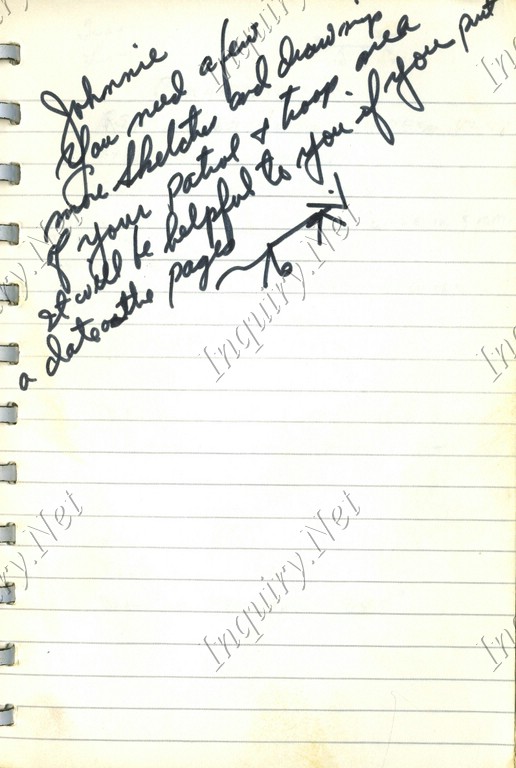 Johnnie
You need a few
more sketches and drawings
of your patrol & troop. area
It will be helpful to you if you put
a date on the pages
Inquiry.Net
Inquiry.Net
Inquiry.Net
Inquiry.Net
Inquiry.Net